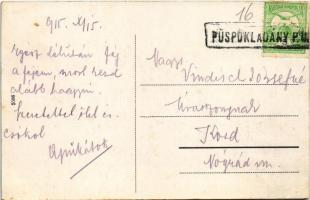 915. XI/15.
16
PÜSPÖKLADÁNY P.U.
Egész délután fáj
a fejem, most kezd
alább hagyni.
Szeretettel ölel és
csókol
Apukátok
Nagys.
Vindisch Józsefné
úrasszonynak
Nógrád vm.